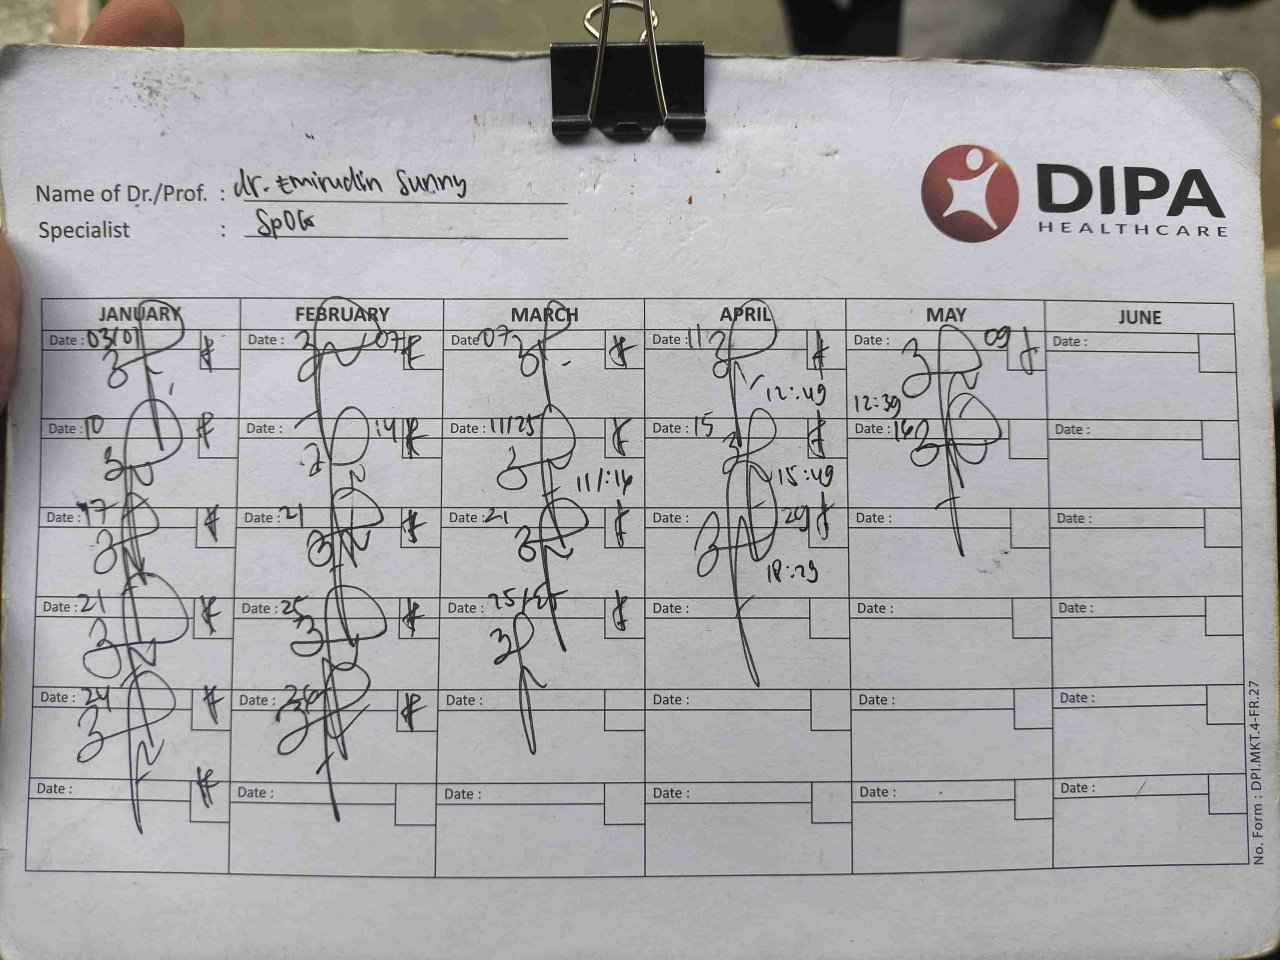 Name of Dr./Prof. : dr. Emirudin Sunny
Specialist : SpOG
DIPA
HEALTHCARE
JANUARY FEBRUARY MARCH APRIL MAY JUNE
Date : 03/01 Date : 07 Date 07 Date : 11 Date : 09 Date :
12:49 12:39
Date : 10 Date : 14 Date : 11/25 Date : 15 Date : 16 Date :
11/:14 15:49
Date : 17 Date : 21 Date : 21 Date : 29 Date : Date :
18:29
Date : 21 Date : 25 Date : 25 Date : Date : Date :
Date : 24 Date : Date : Date : Date : Date :
Date : Date : Date : Date : Date : Date :
No. Form : DPI.MKT.4-FR.27